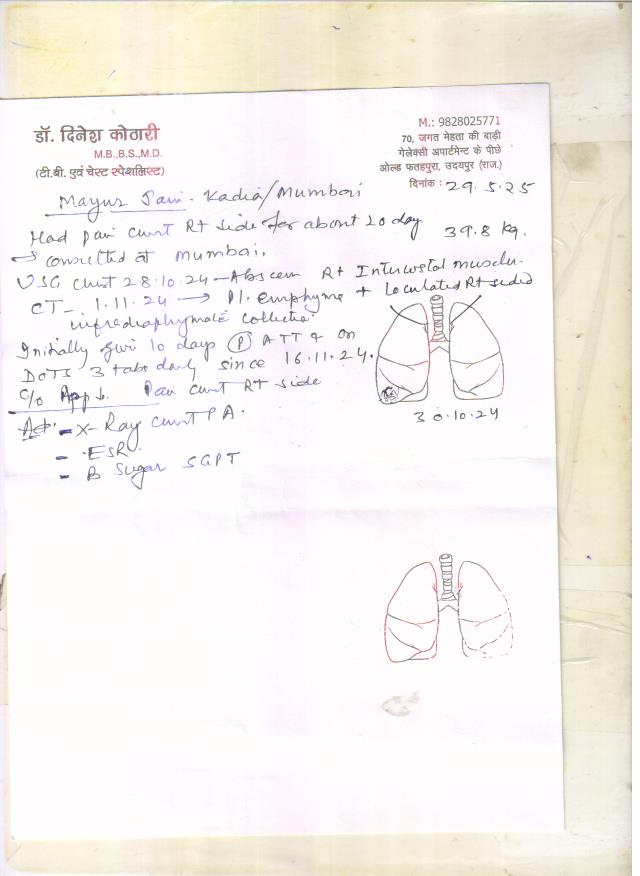 डॉ. दिनेश कोठारी
M.B.,B.S.,M.D.
(टी.बी. एवं चेस्ट स्पेशलिस्ट)
M.: 9828025771
70, जगत मेहता की बाड़ी
गेलेक्सी अपार्टमेन्ट के पीछे
ओल्ड फतहपुरा, उदयपुर (राज.)
दिनांक : 29.5.25
Mayur Kadia/Mumbai
Had pain chest Rt side for about 20 day 39.8 kg.
→ consulted at Mumbai.
USG Chest 28.10.24 - Abscess Rt Intercostal muscles.
CT- 1.11.24 → Pl. emphyma + Loculated Rt sided
infradiaphymatic collection
Initially given 10 days (P) ATT & on
DOTS 3 tabs daily since 16.11.24.
C/o App ↓. Pain chest Rt side
30.10.24
Adv. - X-Ray chest PA.
- ESR.
- B Sugar SGPT